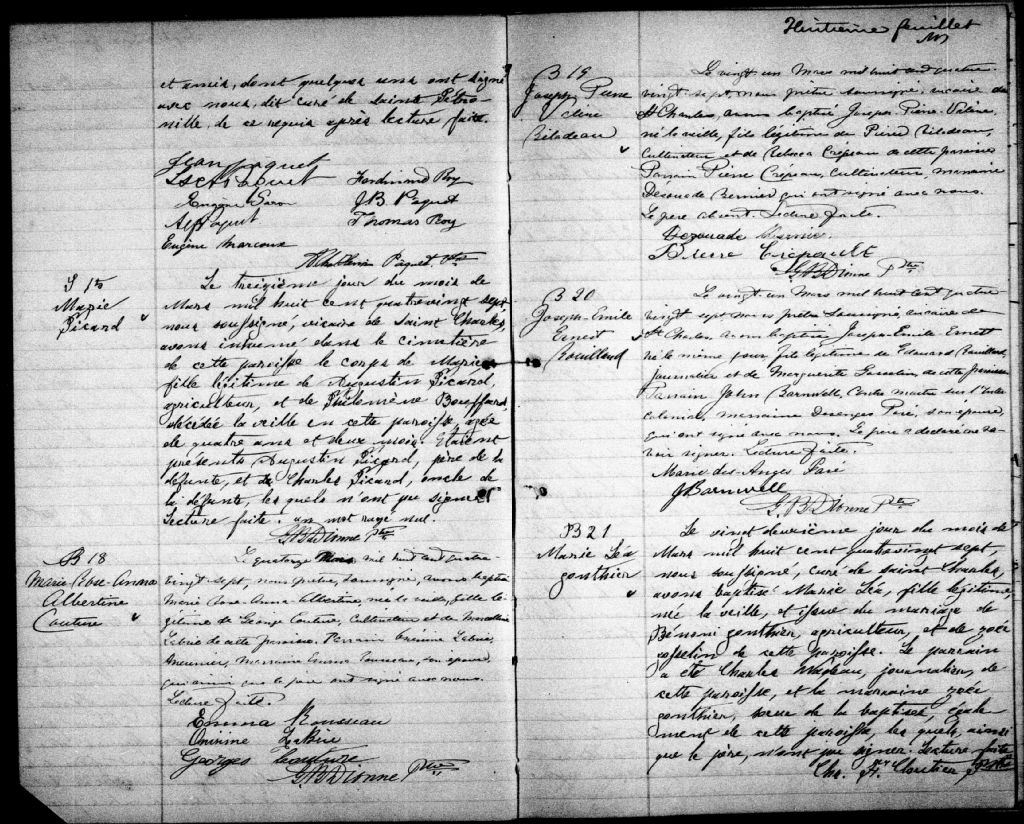 et amis, dont quelques uns ont signé
avec nous, dit curé de Sainte Pétro-
nille, de ce requis après lecture faite.
Jean Paquet
Ferdinand Roy
Eugène Garon
J B Paquet
Alf Paquet
Thomas Roy
Eugène Marcoux
Paquet, Ptre
S 15
Marie
Picard
Le treizième jour du mois de
Mars mil huit cent quatrevingt sept,
nous soussigné, vicaire de Saint Charles,
avons inhumé dans le cimetière
de cette paroisse le corps de Marie
fille légitime de Augustin Picard,
agriculteur, et de Philomène Bouffard,
décédée la veille en cette paroisse, agée
de quatre ans et deux mois. Étaient
présents Augustin Picard, père de la
défunte, et de Charles Picard, oncle de
la défunte, les quels n'ont pu signer.
Lecture faite. un mot rayé nul.
G. B. Dionne Ptre
B 18
Marie Rose-Anna
Albertine
Couture
Le quatorze Mars mil huit cent quatre
vingt-sept, nous prêtre, soussigné, avons baptisé
Marie Rose-Anna Albertine, née la veille, fille lé-
gitime de George Couture, Cultivateur et de
Labrie de cette paroisse. Parrain Onésime Labrie,
meunier, Marraine Emma Rousseau, son épouse,
qui ainsi que le père ont signé avec nous.
Lecture faite.
Emma Rousseau
Onésime Labrie
Georges Couture
G. B. Dionne Ptre
Huitième feuillet
B 19
Joseph Pierre
Valère
Bilodeau
Le vingt un Mars mil huit cent quatre
vingt sept nous prêtre soussigné, vicaire de
St Charles, avons baptisé Joseph-Pierre-Valère,
né la veille, fils légitime de Pierre Bilodeau,
Cultivateur et de Rebecca Crépeau de cette paroisse
Parrain Pierre Crépeau, Cultivateur, marraine
Bernier qui ont signé avec nous.
Le père absent. Lecture faite.
Bernier
Pierre Crepault
G. B. Dionne Ptre
B 20
Joseph-Emile
Ernest
Rouillard
Le vingt un Mars mil huit cent quatre
vingt sept nous prêtre soussigné, vicaire de
St Charles, avons baptisé Joseph-Emile Ernest
né le même jour, fils légitime de Edouard Rouillard,
journalier et de Marguerite de cette paroisse
Parrain John Barnwell, Contre maitre sur l'Inter
colonial, marraine Desanges Paré, son épouse,
qui ont signé avec nous. Le père a déclaré ne sa-
voir signer. Lecture faite.
Marie-des-Anges Paré
J Barnwell
G. B. Dionne Ptre
B 21
Marie Léa
Gonthier
Le vingt deuxième jour du mois de
Mars mil huit cent quatrevingt sept,
nous soussigné, curé de Saint Charles,
avons baptisé Marie Léa, fille légitime,
née la veille, et issue du mariage de
Bénoni Gonthier, agriculteur, et de Zoé
Gosselin de cette paroisse. Le parrain
a été Charles Nadeau, journalier, de
cette paroisse, et la marraine Zoé
Gonthier, soeur de la baptisée, égale-
ment de cette paroisse, les quels, ainsi
que le père, n'ont pu signer. Lecture faite
Chs. Cloutier Ptre